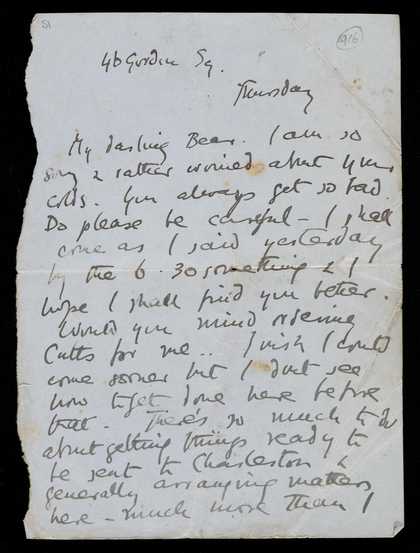 51
916
46 Gordon Sq.
Thursday
My darling Bear. I am so
sorry & rather worried about your
colds. You always get so bad.
Do please be careful – I shall
come as I said yesterday
by the 6.30 something & I
hope I shall find you better.
Would you mind ordering
Cutts for me.. I wish I could
come sooner but I don't see
how to get done here before
that. There's so much to do
about getting things ready to
be sent to Charleston &
generally arranging matters
here – much more than I